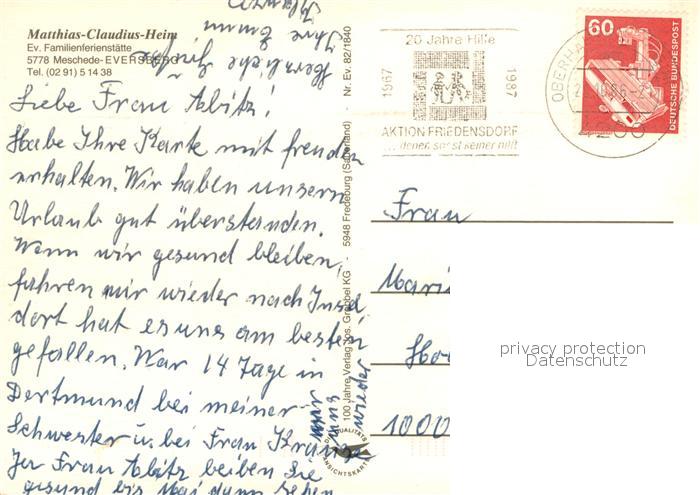 Matthias-Claudius-Heim
Ev. Familienferienstätte
5778 Meschede-EVERSBERG
Tel. (02 91) 5 14 38
Liebe Frau Abitz!
Habe Ihre Karte mit freuden
erhalten. Wir haben unsern
Urlaub gut überstanden.
Wenn wir gesund bleiben,
fahren wir wieder nach Insel
dort hat es uns am besten
gefallen. War 14 Tage in
Dortmund bei meiner
Schwester u. bei Frau Krause
Frau Abitz beiben Sie
gesund bis Mai dann sehen
wir
uns
wieder
Herzliche Grüße
Ihre
100 Jahre Verlag Jos. Grobbel KG - 5948 Fredeburg (Sauerland) - Nr. Ev. 82/1840
QUALITÄTS
ANSICHTSKARTE
20 Jahre Hilfe
1967
1987
AKTION FRIEDENSDORF
...denen sonst keiner hilft
60
DEUTSCHE BUNDESPOST
OBERHA
4200
Frau
Mari
1000
privacy protection
Datenschutz